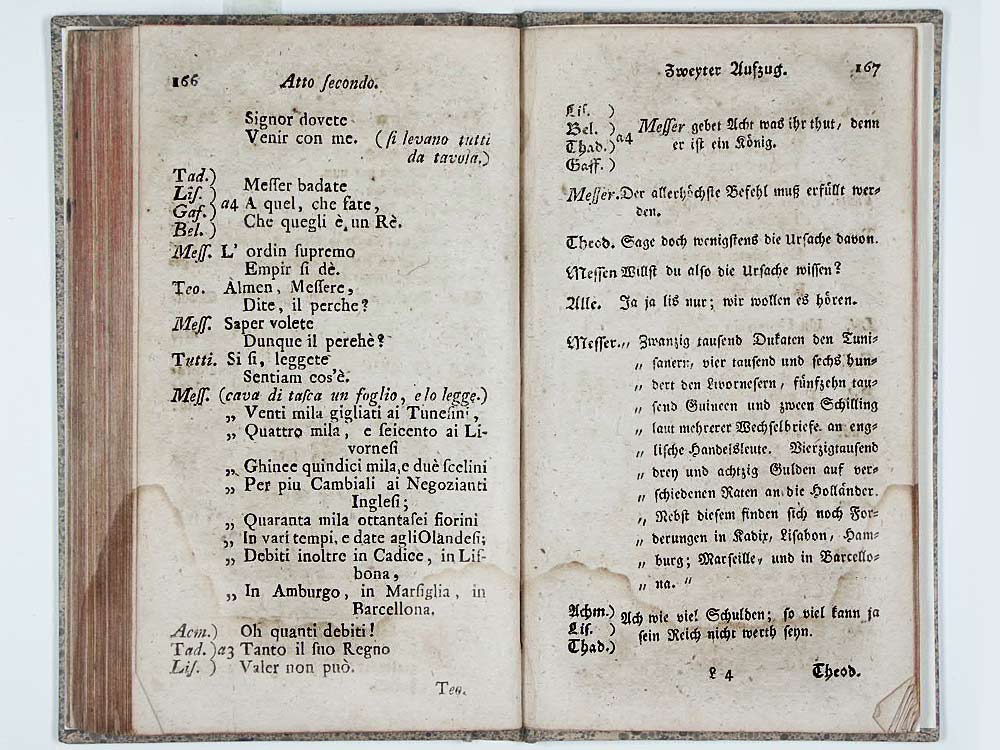 166 Atto ſecondo.
Signor dovete
Venir con me. (ſi levano tutti
da tavola.)
Tad.)
Liſ. )
Gaf.) a4
Bel. )
Meſſer badate
A quel, che fate,
Che quegli è un Rè.
Meſſ. L' ordin ſupremo
Empir ſi dè.
Teo. Almen, Meſſere,
Dite, il perche?
Meſſ. Saper volete
Dunque il perehè?
Tutti. Si ſi, leggete
Sentiam cos'è.
Meſſ. (cava di taſca un foglio, e lo legge.)
„ Venti mila gigliati ai Tuneſini,
„ Quattro mila, e ſeicento ai Li-
vorneſi
„ Ghinee quindici mila, e duè ſcelini
„ Per piu Cambiali ai Negozianti
Ingleſi;
„ Quaranta mila ottantaſei fiorini
„ In vari tempi, e date agliOlandeſi;
„ Debiti inoltre in Cadice, in Liſ-
bona,
„ In Amburgo, in Marſiglia, in
Barcellona.
Acm.) Oh quanti debiti!
Tad. )a3 Tanto il ſuo Regno
Liſ. ) Valer non può.
Teo.
Zweyter Aufzug. 167
Liſ. )
Bel. )
Thad.) a4
Gaff. )
Meſſer gebet Acht was ihr thut, denn
er iſt ein König.
Meſſer. Der allerhöchſte Befehl muß erfüllt wer-
den.
Theod. Sage doch wenigſtens die Urſache davon.
Meſſen Willſt du alſo die Urſache wiſſen?
Alle. Ja ja lis nur; wir wollen es hören.
Meſſer. „ Zwanzig tauſend Dukaten den Tuni-
„ ſanern, vier tauſend und ſechs hun-
„ dert den Livorneſern, fünfzehn tau-
„ ſend Guineen und zween Schilling
„ laut mehrerer Wechſelbriefe an eng-
„ liſche Handelsleute. Vierzigtauſend
„ drey und achtzig Gulden auf ver-
„ ſchiedenen Raten an die Holländer.
„ Nebſt dieſem finden ſich noch For-
„ derungen in Kadix, Liſabon, Ham-
„ burg; Marſeille, und in Barcello-
„ na. “
Achm.) Ach wie viel Schulden; ſo viel kann ja
Liſ. ) ſein Reich nicht werth ſeyn.
Thad.)
L 4 Theod.